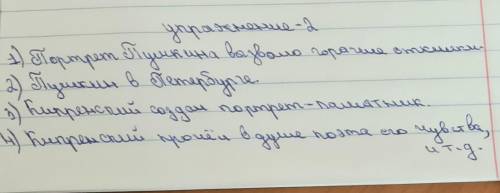 упражнение-2
1) Портрет Пушкина вазвало горячие отклики.
2) Пушкин в Петербурге.
3) Кипренский создал портрет-памятник.
4) Кипренский прочёл в душе поэта его чувства,
и т.д.